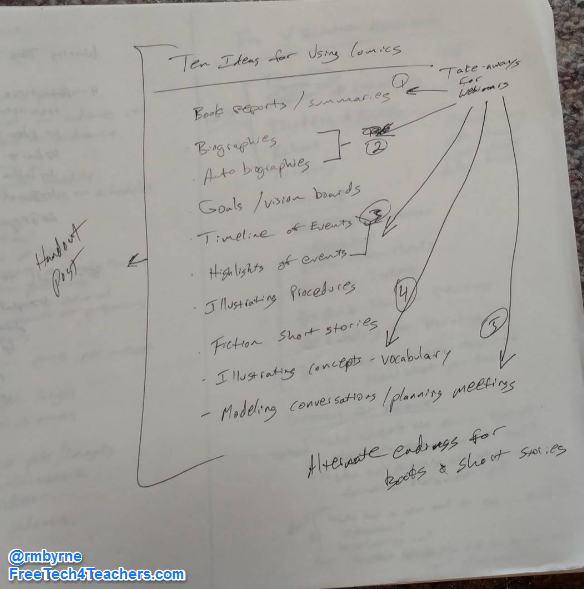 Ten Ideas for Using Comics
Take-aways
for
webinars
· Book reports / summaries
1
· Biographies
2
· Auto biographies
· Goals / vision boards
· Timeline of Events
3
· Highlights of events
· Illustrating Procedures
4
· Fiction short stories
5
- Illustrating concepts - vocabulary
- Modeling conversations / planning meetings
Alternate endings for
Books & short stories
Handout
Post
@rmbyrne
FreeTech4Teachers.com